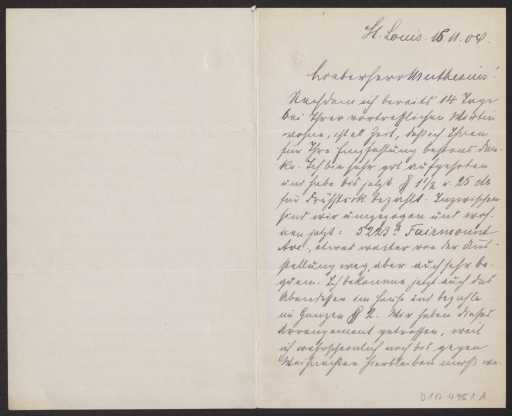 St. Louis. 18.11.04.
Lieber Herr Muthesius!
Nachdem ich bereits 14 Tage
bei Ihrer vortrefflichen Wirtin
wohne, ist es Zeit, daß ich Ihnen
für Ihre Empfehlung bestens dan-
ke. Ich bin sehr gut aufgehoben
und habe bis jetzt $ 1 1/2 u. 25 cts
für Frühstück bezahlt. Inzwischen
sind wir umgezogen und woh-
nen jetzt: 5223a Fairmount
Ave., etwas weiter von der Aus-
stellung weg, aber auch sehr be-
quem. Ich bekomme jetzt auch das
Abendessen im Hause und bezahle
im Ganzen $ 2. Wir haben dieses
Arrangement getroffen, weil
ich wahrscheinlich noch bis gegen
Weihnachten hierbleiben muß we-
D102-4951 A